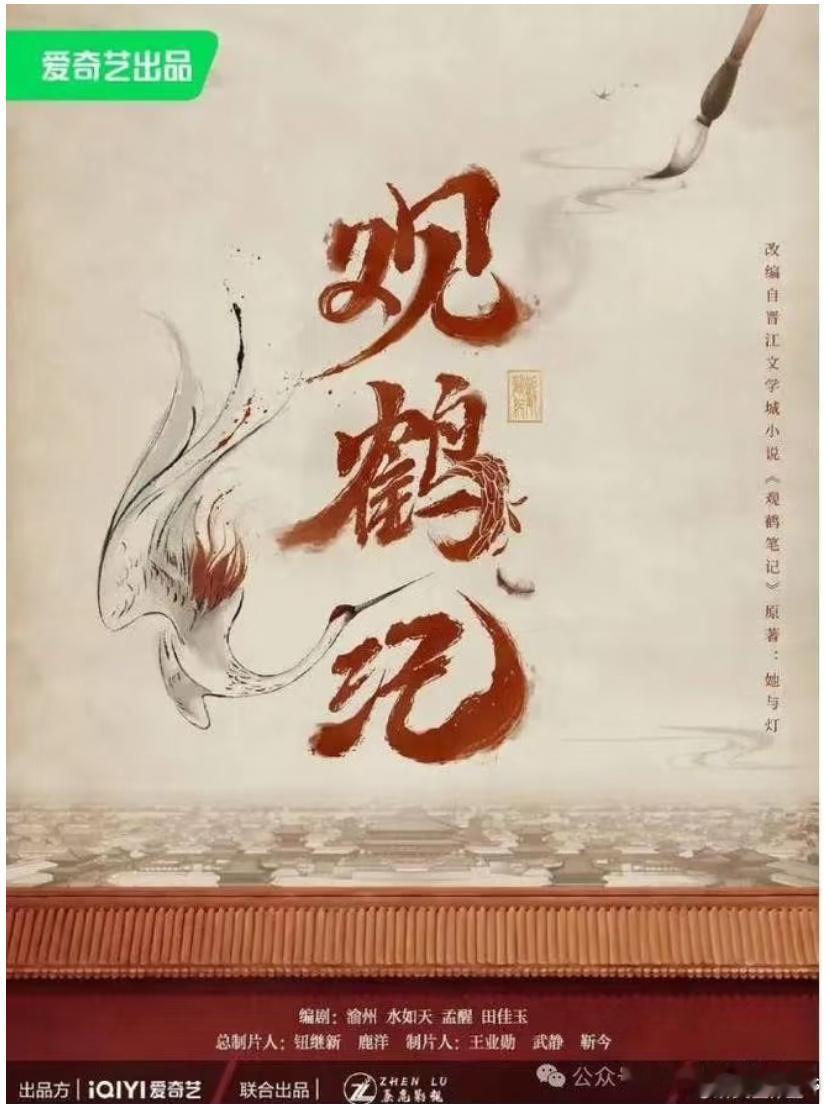 爱奇艺出品
观鹤记
改编自晋江文学城小说《观鹤笔记》原著：她与灯
编剧：渝州 水如天 孟醒 田佳玉
总制片人：钮继新 鹿洋 制片人：王业勋 武静 靳今
出品方 iQIYI 爱奇艺 联合出品 ZHEN LU
公众号